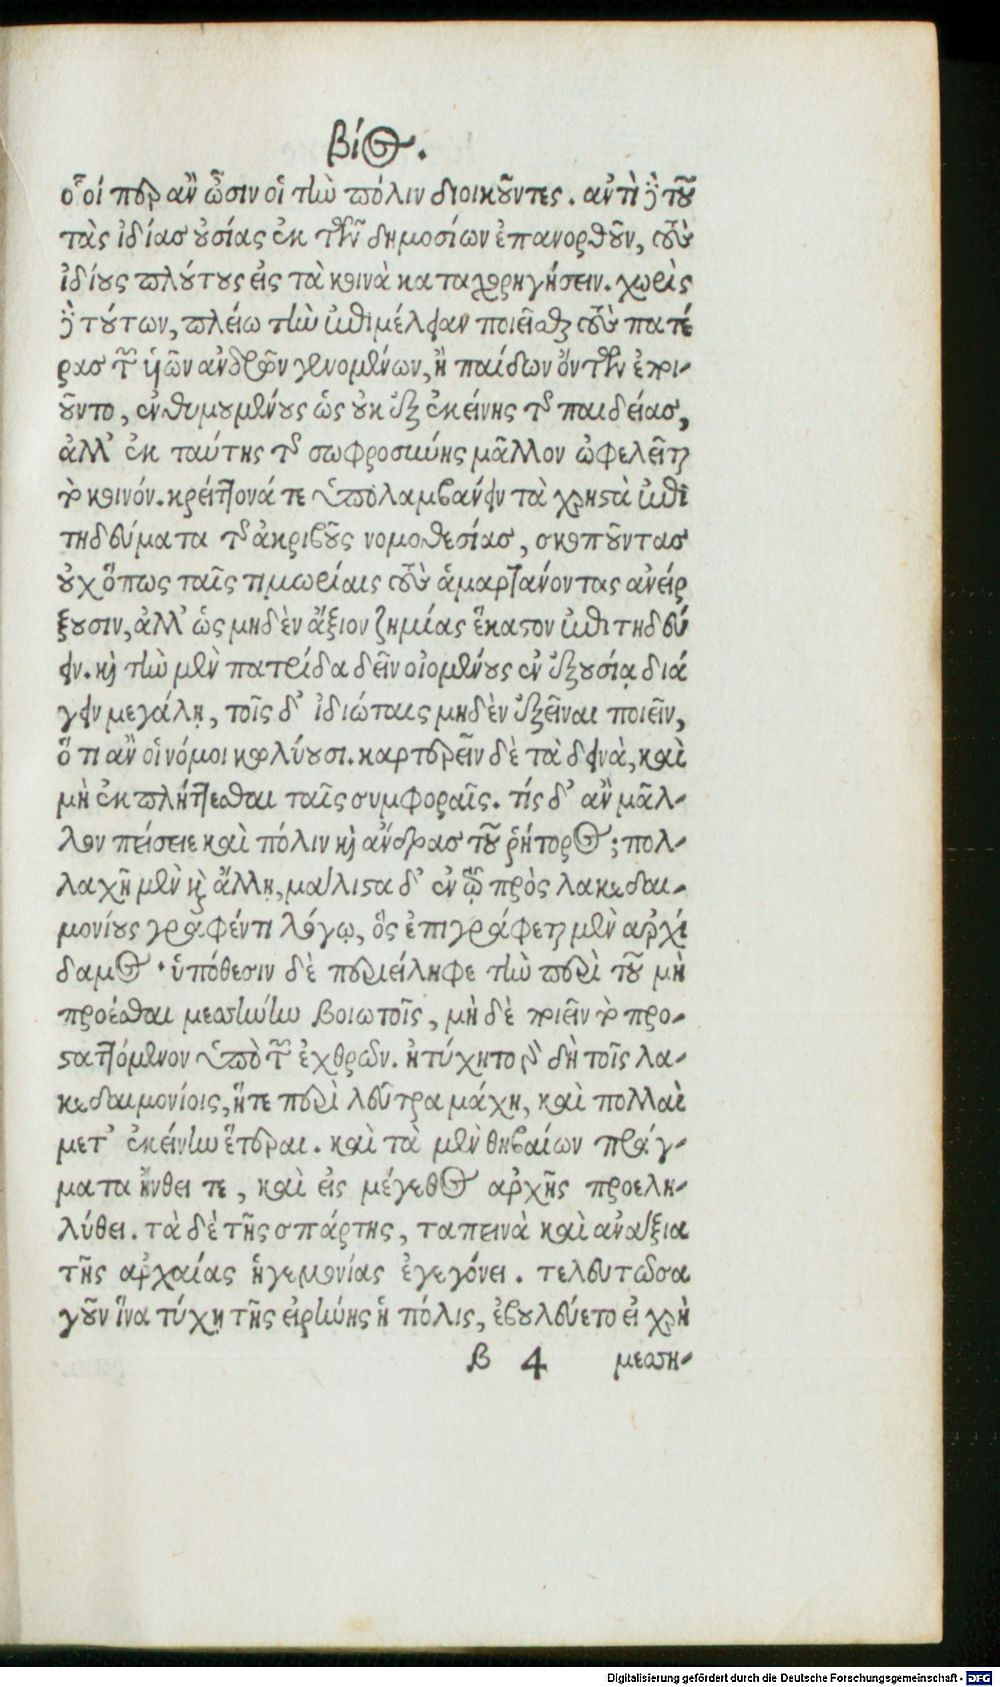 βίος.
οἷοί περ ἂν ὦσιν οἱ τὴν πόλιν διοικοῦντες. ἀντὶ δὲ τοῦ
τὰς ἰδίας οὐσίας ἐκ τῶν δημοσίων ἐπανορθοῦν, τοὺς
ἰδίους πλούτους εἰς τὰ κοινὰ καταχορηγήσειν. χωρὶς
δὲ τούτων, πλείω τὴν ἐπιμέλειαν ποιεῖσθαι τοὺς πατέ
ρας τῶν ἡβῶν ἀνδρῶν γενομένων, ἢ παίδων ὄντων ἐποι-
οῦντο, ἐνθυμουμένους ὡς οὐκ ἐξ ἐκείνης τῆς παιδείας,
ἀλλ' ἐκ ταύτης τῆς σωφροσύνης μᾶλλον ὠφελεῖται
τὸ κοινόν. κρείττονά τε ὑπολαμβάνειν τὰ χρηστὰ ἐπι
τηδεύματα τῆς ἀκριβοῦς νομοθεσίας, σκοποῦντας
οὐχ ὅπως ταῖς τιμωρίαις τοὺς ἁμαρτάνοντας ἀνείρ
ξουσιν, ἀλλ' ὡς μηδὲν ἄξιον ζημίας ἕκαστον ἐπιτηδεύ
ειν. καὶ τὴν μὲν πατρίδα δεῖν οἰομένους ἐν ἐξουσίᾳ διά
γειν μεγάλῃ, τοῖς δ' ἰδιώταις μηδὲν ἐξεῖναι ποιεῖν,
ὅ τι ἂν οἱ νόμοι κωλύουσι. καρτερεῖν δὲ τὰ δεινὰ, καὶ
μὴ ἐκπλήττεσθαι ταῖς συμφοραῖς. τίς δ' ἂν μᾶλ-
λον πείσειε καὶ πόλιν καὶ ἄνδρας τοῦ ῥήτορος; πολ-
λαχῆ μὲν κἂ ἄλλῃ, μάλιστα δ' ἐν τῷ πρὸς λακεδαι-
μονίους γραφέντι λόγῳ, ὃς ἐπιγράφεται μὲν ἀρχί
δαμος· ὑπόθεσιν δὲ περιείληφε τὴν περὶ τοῦ μὴ
προέσθαι μεσσήνην βοιωτοῖς, μὴ δὲ ποιεῖν τὸ προ-
σταττόμενον ὑπὸ τῶν ἐχθρῶν. ἠτύχητο γὰρ δὴ τοῖς λα-
κεδαιμονίοις, ἥτε περὶ λεῦτρα μάχη, καὶ πολλαὶ
μετ' ἐκείνην ἕτεραι. καὶ τὰ μὲν θηβαίων πράγ-
ματα ἤνθει τε, καὶ εἰς μέγεθος ἀρχῆς προελη-
λύθει. τὰ δὲ τῆς σπάρτης, ταπεινὰ καὶ ἀνάξια
τῆς ἀρχαίας ἡγεμονίας ἐγεγόνει. τελευτῶσα
γοῦν ἵνα τύχῃ τῆς εἰρήνης ἡ πόλις, ἐβουλεύετο εἰ χρὴ
β 4 μεσση-
Digitalisierung gefördert durch die Deutsche Forschungsgemeinschaft - DFG